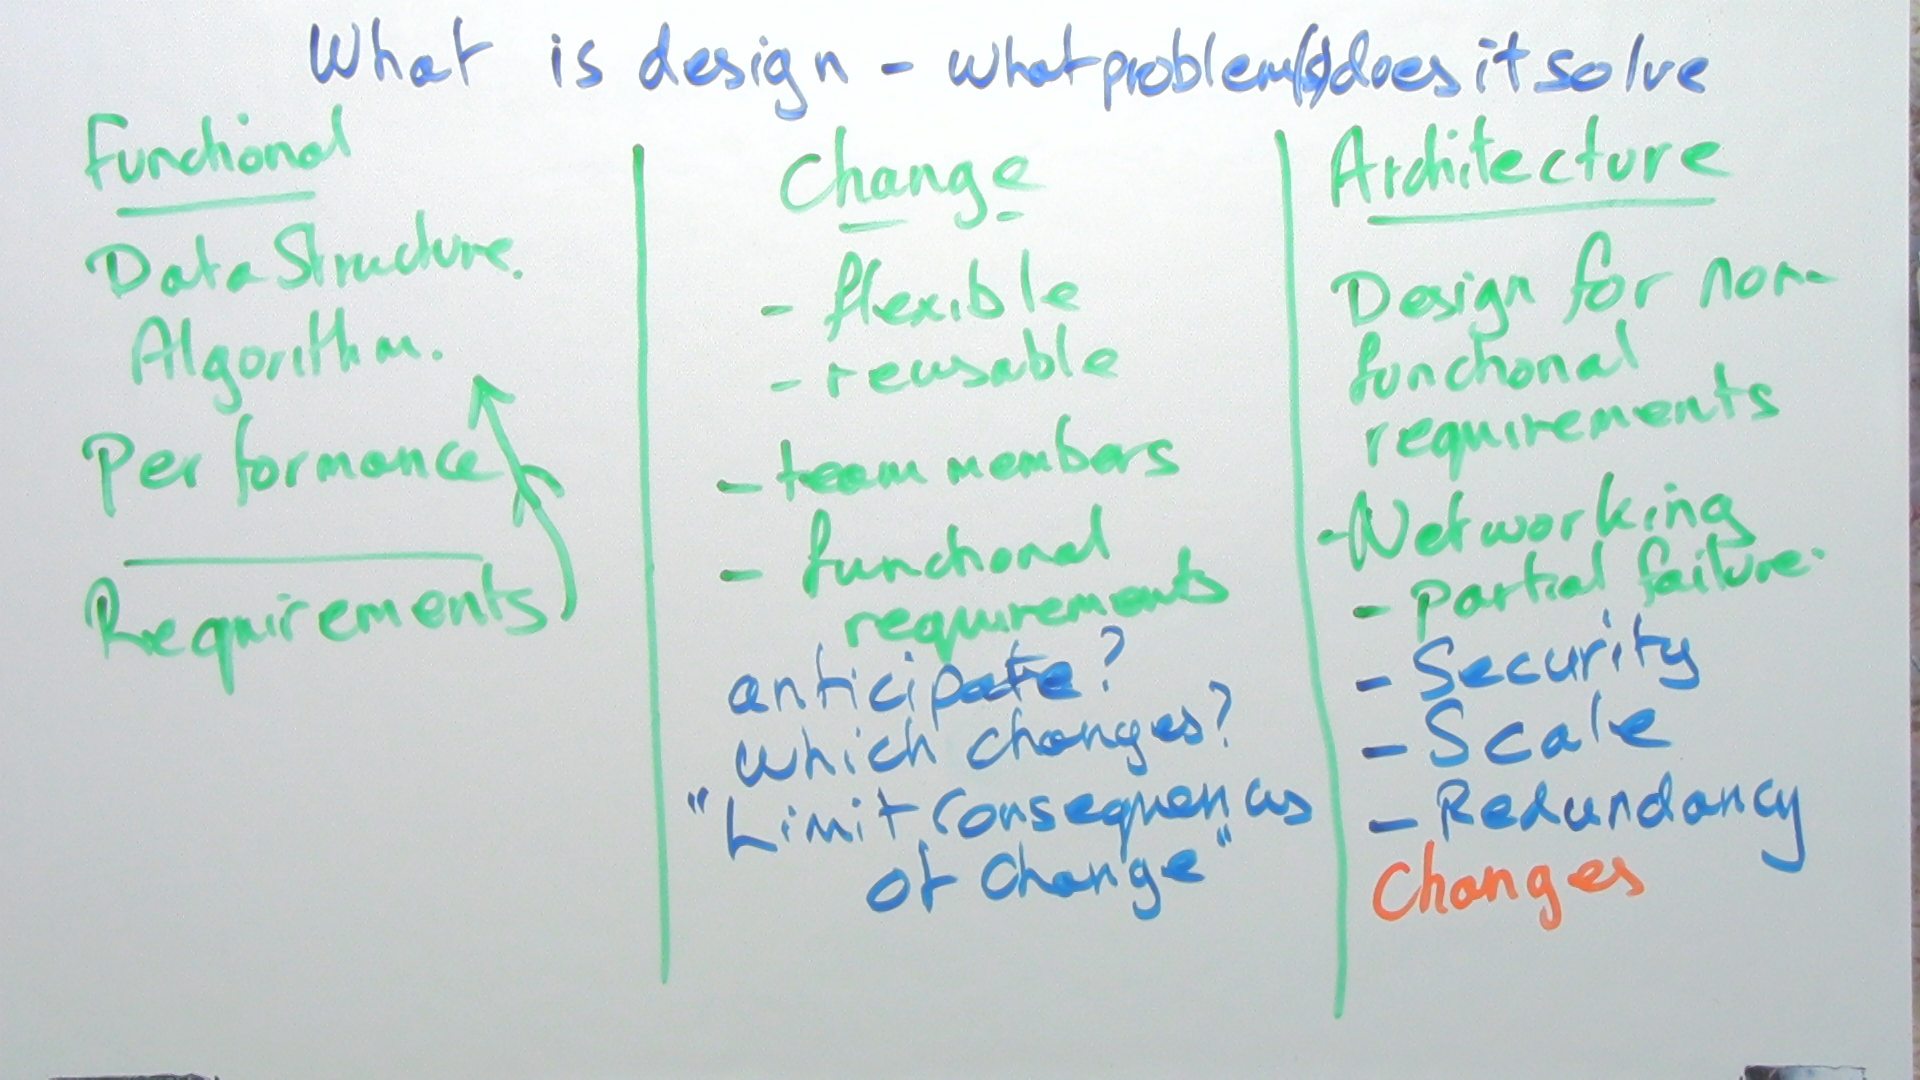 What is design - what problem(s) does it solve
Functional
Data Structure.
Algorithm.
Performance
Requirements
Change
- flexible
- reusable
- team members
- functional
requirements
anticipate?
which changes?
"Limit Consequences
of Change"
Architecture
Design for non-
functional
requirements
- Networking
- partial failure.
- Security
- Scale
- Redundancy
Changes